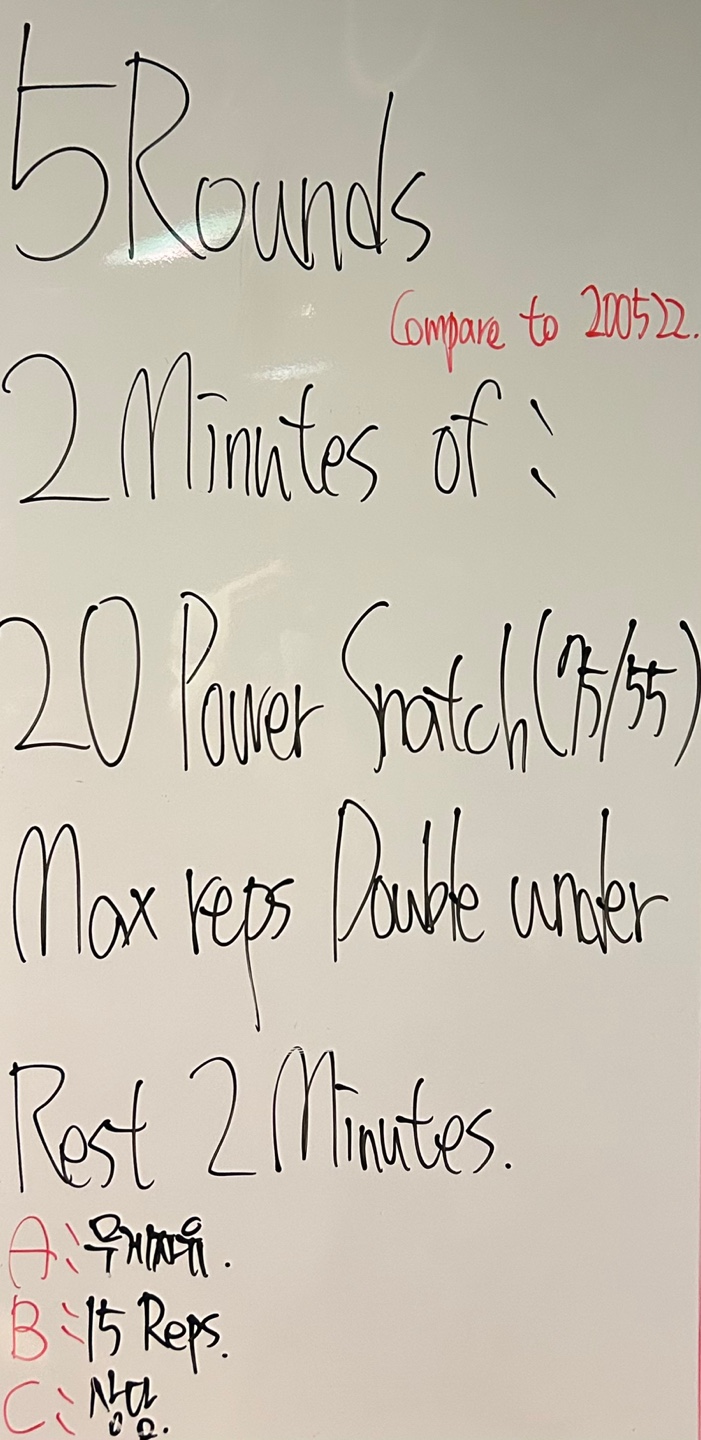 5 Rounds
Compare to 200522.
2 Minutes of :
20 Power Snatch (75/55)
Max reps Double under
Rest 2 Minutes.
A: 무게자유.
B: 15 Reps.
C: 상담.